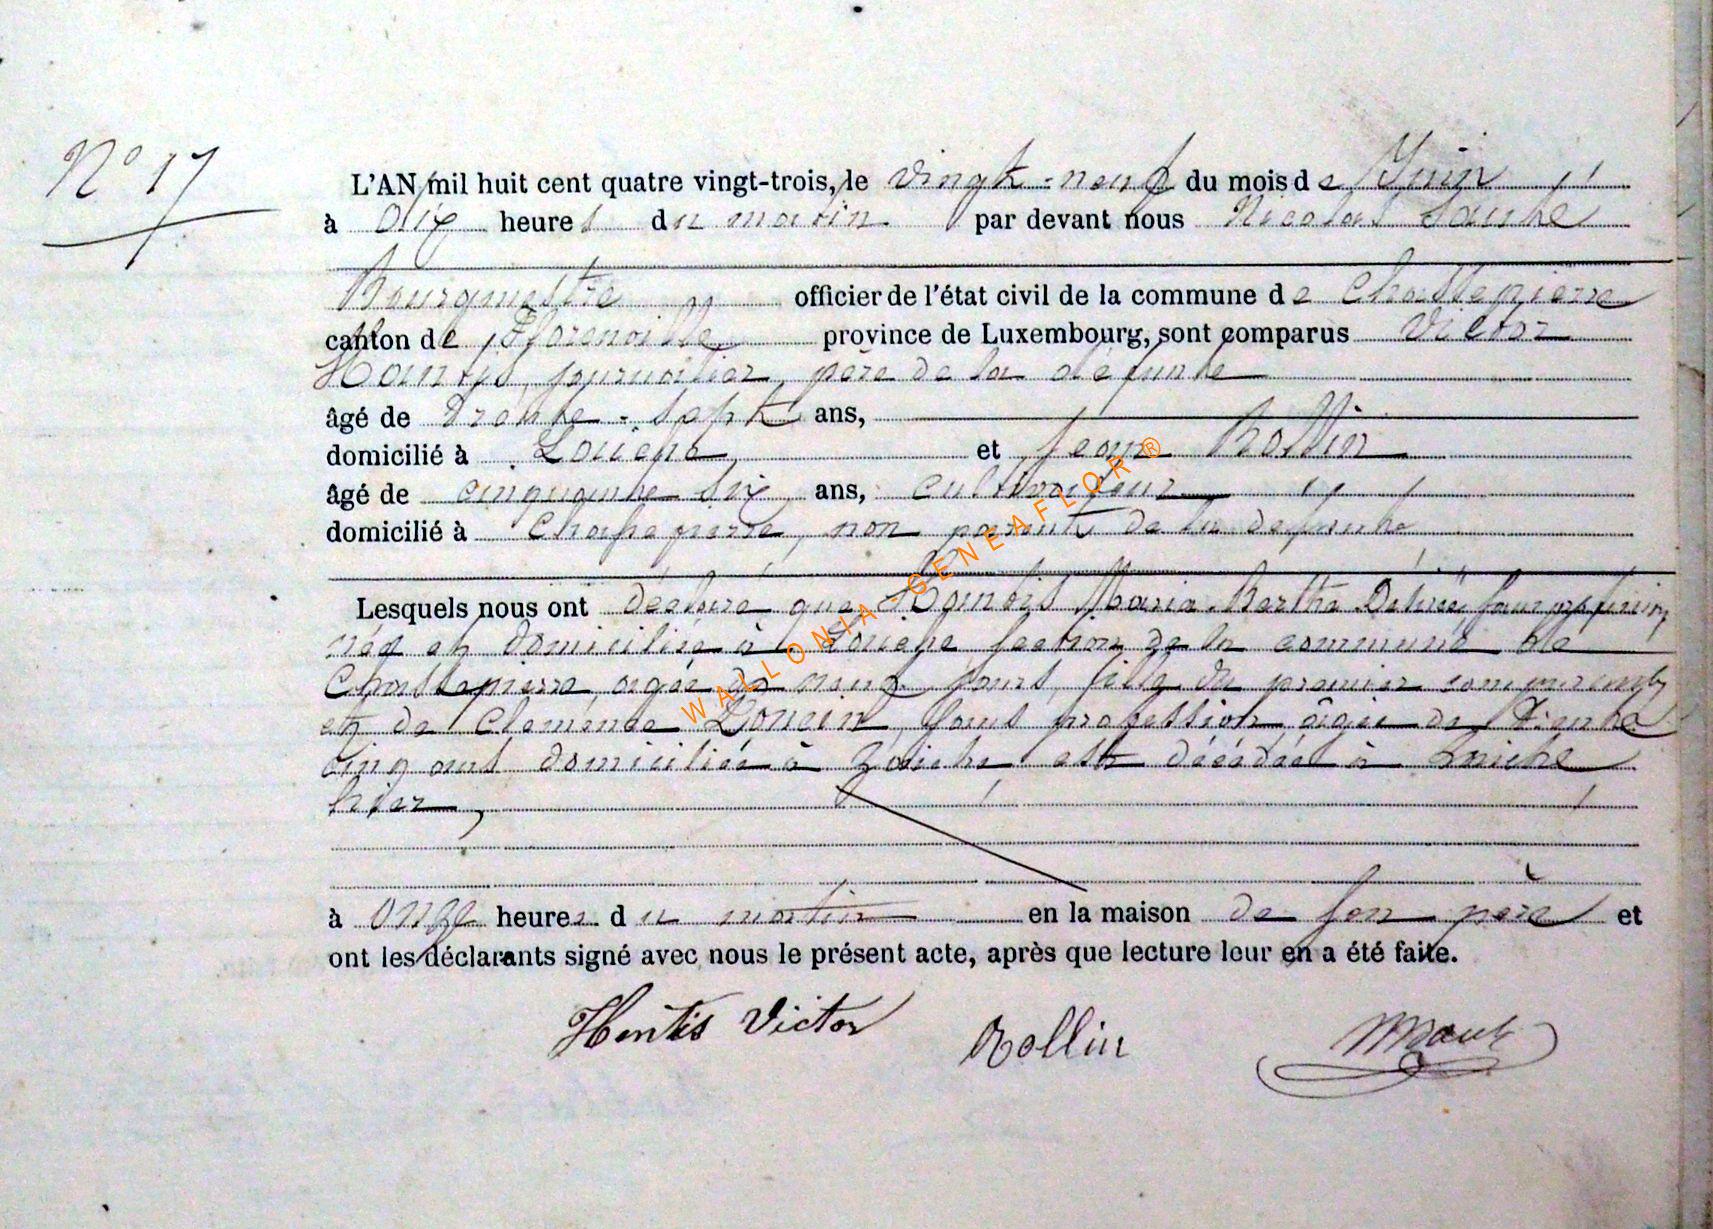 N° 17
L'AN mil huit cent quatre vingt-trois, le vingt-neuf du mois de Juin
à dix heures du matin par devant nous Nicolas
Bourgmestre officier de l'état civil de la commune de Chassepierre
canton de Florenville province de Luxembourg, sont comparus Victor
journalier, père de la défunte
âgé de trente-sept ans,
domicilié à Laiche et Jean Rollin
âgé de cinquante six ans, cultivateur
domicilié à Chassepierre, non parent de la défunte
Lesquels nous ont déclaré que Maria Bertha Désirée, sans profession
née et domiciliée à Laiche section de la commune de
Chassepierre, agée de neuf jours, fille du premier comparant
et de Clémence sans profession, âgée de trente
cinq ans domiciliée à Laiche est décédée à Laiche
hier,
à onze heures du matin en la maison de son père et
ont les déclarants signé avec nous le présent acte, après que lecture leur en a été faite.
Hentis Victor Rollin
WALLONIA-GENEAFLOR®